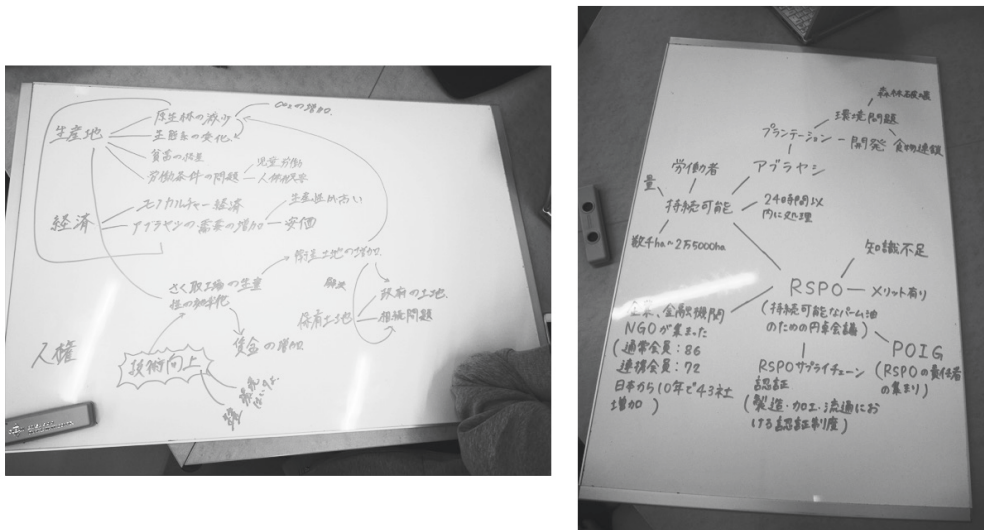 生産地
原生林の減少
CO₂の増加
生態系の変化
貧富の拡差
労働条件の問題
児童労働
人体被害
経済
モノカルチャー経済
アブラヤシの需要の増加
安価
さく取工場の生産
性の効率化
衛生土地の増加
解決
政府の土地
保有土地
相続問題
賃金の増加
人権
技術向上
森林破壊
環境問題
プランテーション
開発
食物連鎖
労働者
アブラヤシ
量
持続可能
24時間以
内に処理
数千ha〜2万5000ha
知識不足
RSPO
メリット有り
(持続可能なパーム油
のための円卓会議)
企業、金融機関
NGOが集まった
(通常会員:86
連携会員:72
日本から10年で43社
増加)
POIG
(RSPOの責任者
の集まり)
RSPOサプライチェーン
認証
(製造・加工・流通にお
ける認証制度)